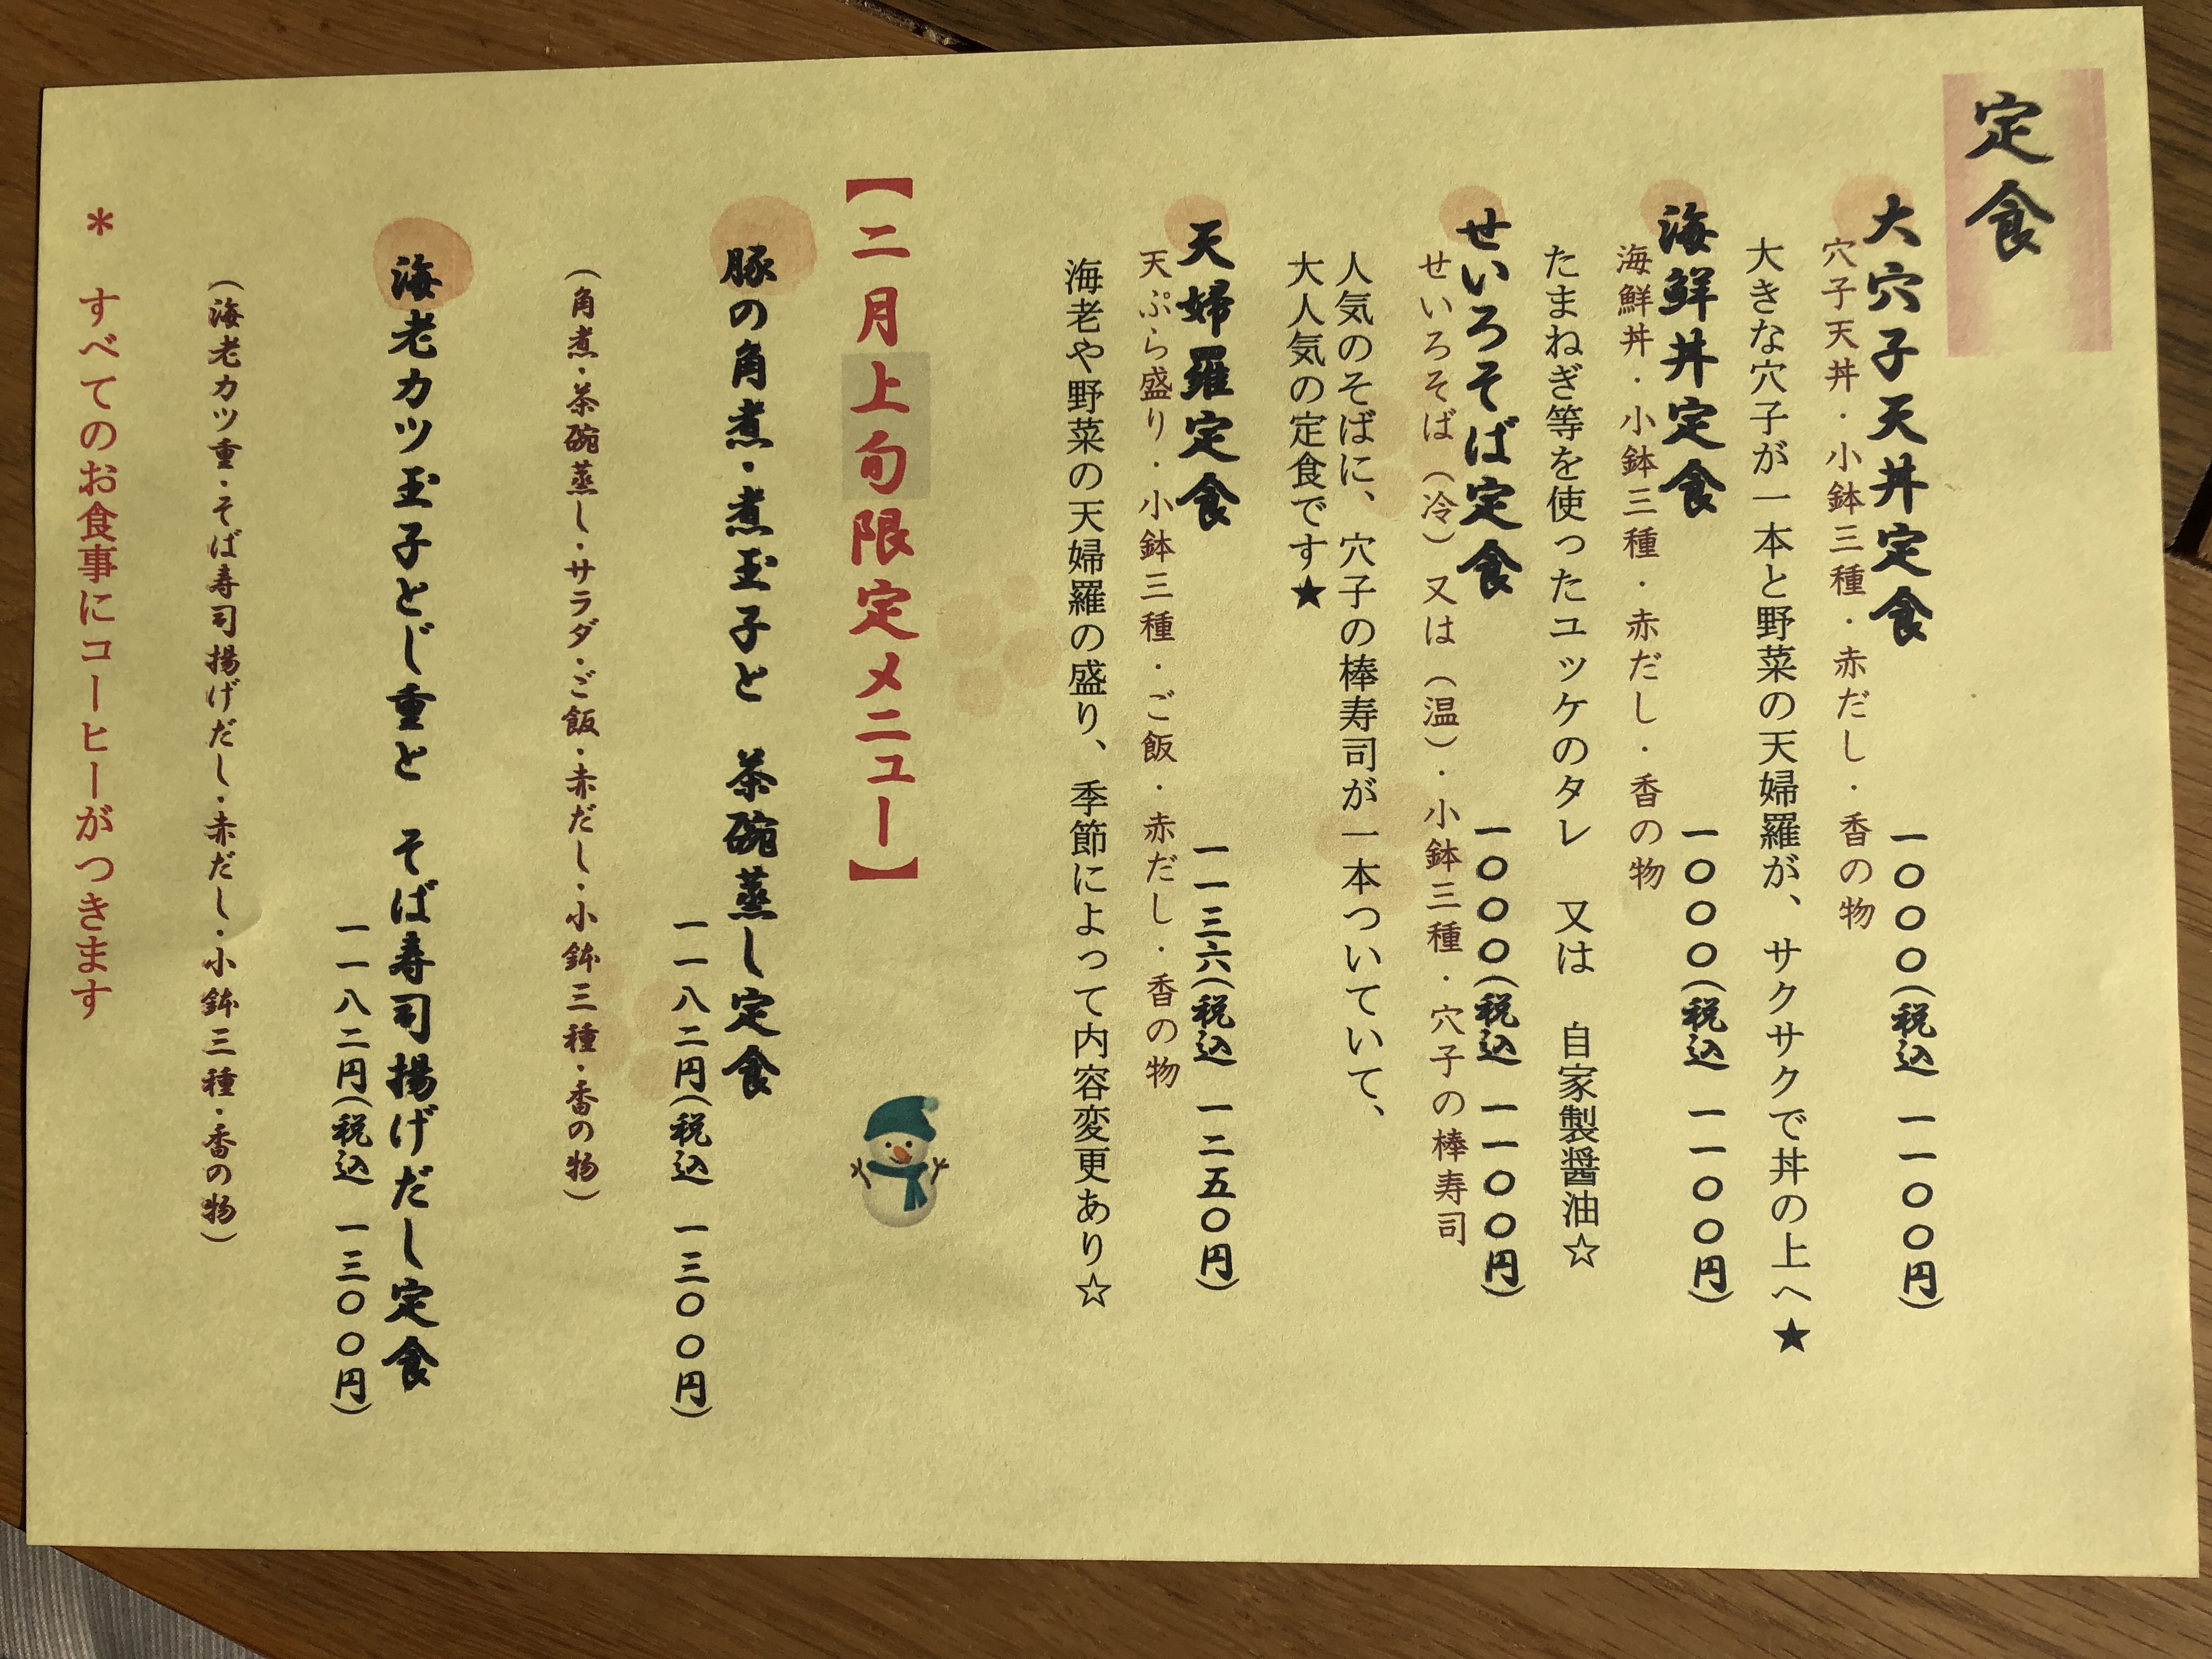 定食
大穴子天丼定食　一〇〇〇(税込　一一〇〇円)
穴子天丼・小鉢三種・赤だし・香の物
大きな穴子が一本と野菜の天婦羅が、サクサクで丼の上へ★
海鮮丼定食　一〇〇〇(税込　一一〇〇円)
海鮮丼・小鉢三種・赤だし・香の物
たまねぎ等を使ったユッケのタレ　又は　自家製醤油☆
せいろそば定食　一〇〇〇(税込　一一〇〇円)
せいろそば（冷）又は（温）・小鉢三種・穴子の棒寿司
人気のそばに、穴子の棒寿司が一本ついていて、
大人気の定食です★
天婦羅定食　一一三六(税込　一二五〇円)
天ぷら盛り・小鉢三種・ご飯・赤だし・香の物
海老や野菜の天婦羅の盛り、季節によって内容変更あり☆
【二月上旬限定メニュー】
豚の角煮・煮玉子と　茶碗蒸し定食
一一八二円(税込　一三〇〇円)
（角煮・茶碗蒸し・サラダ・ご飯・赤だし・小鉢三種・香の物）
海老カツ玉子とじ重と　そば寿司揚げだし定食
一一八二円(税込　一三〇〇円)
（海老カツ重・そば寿司揚げだし・赤だし・小鉢三種・香の物）
＊　すべてのお食事にコーヒーがつきます